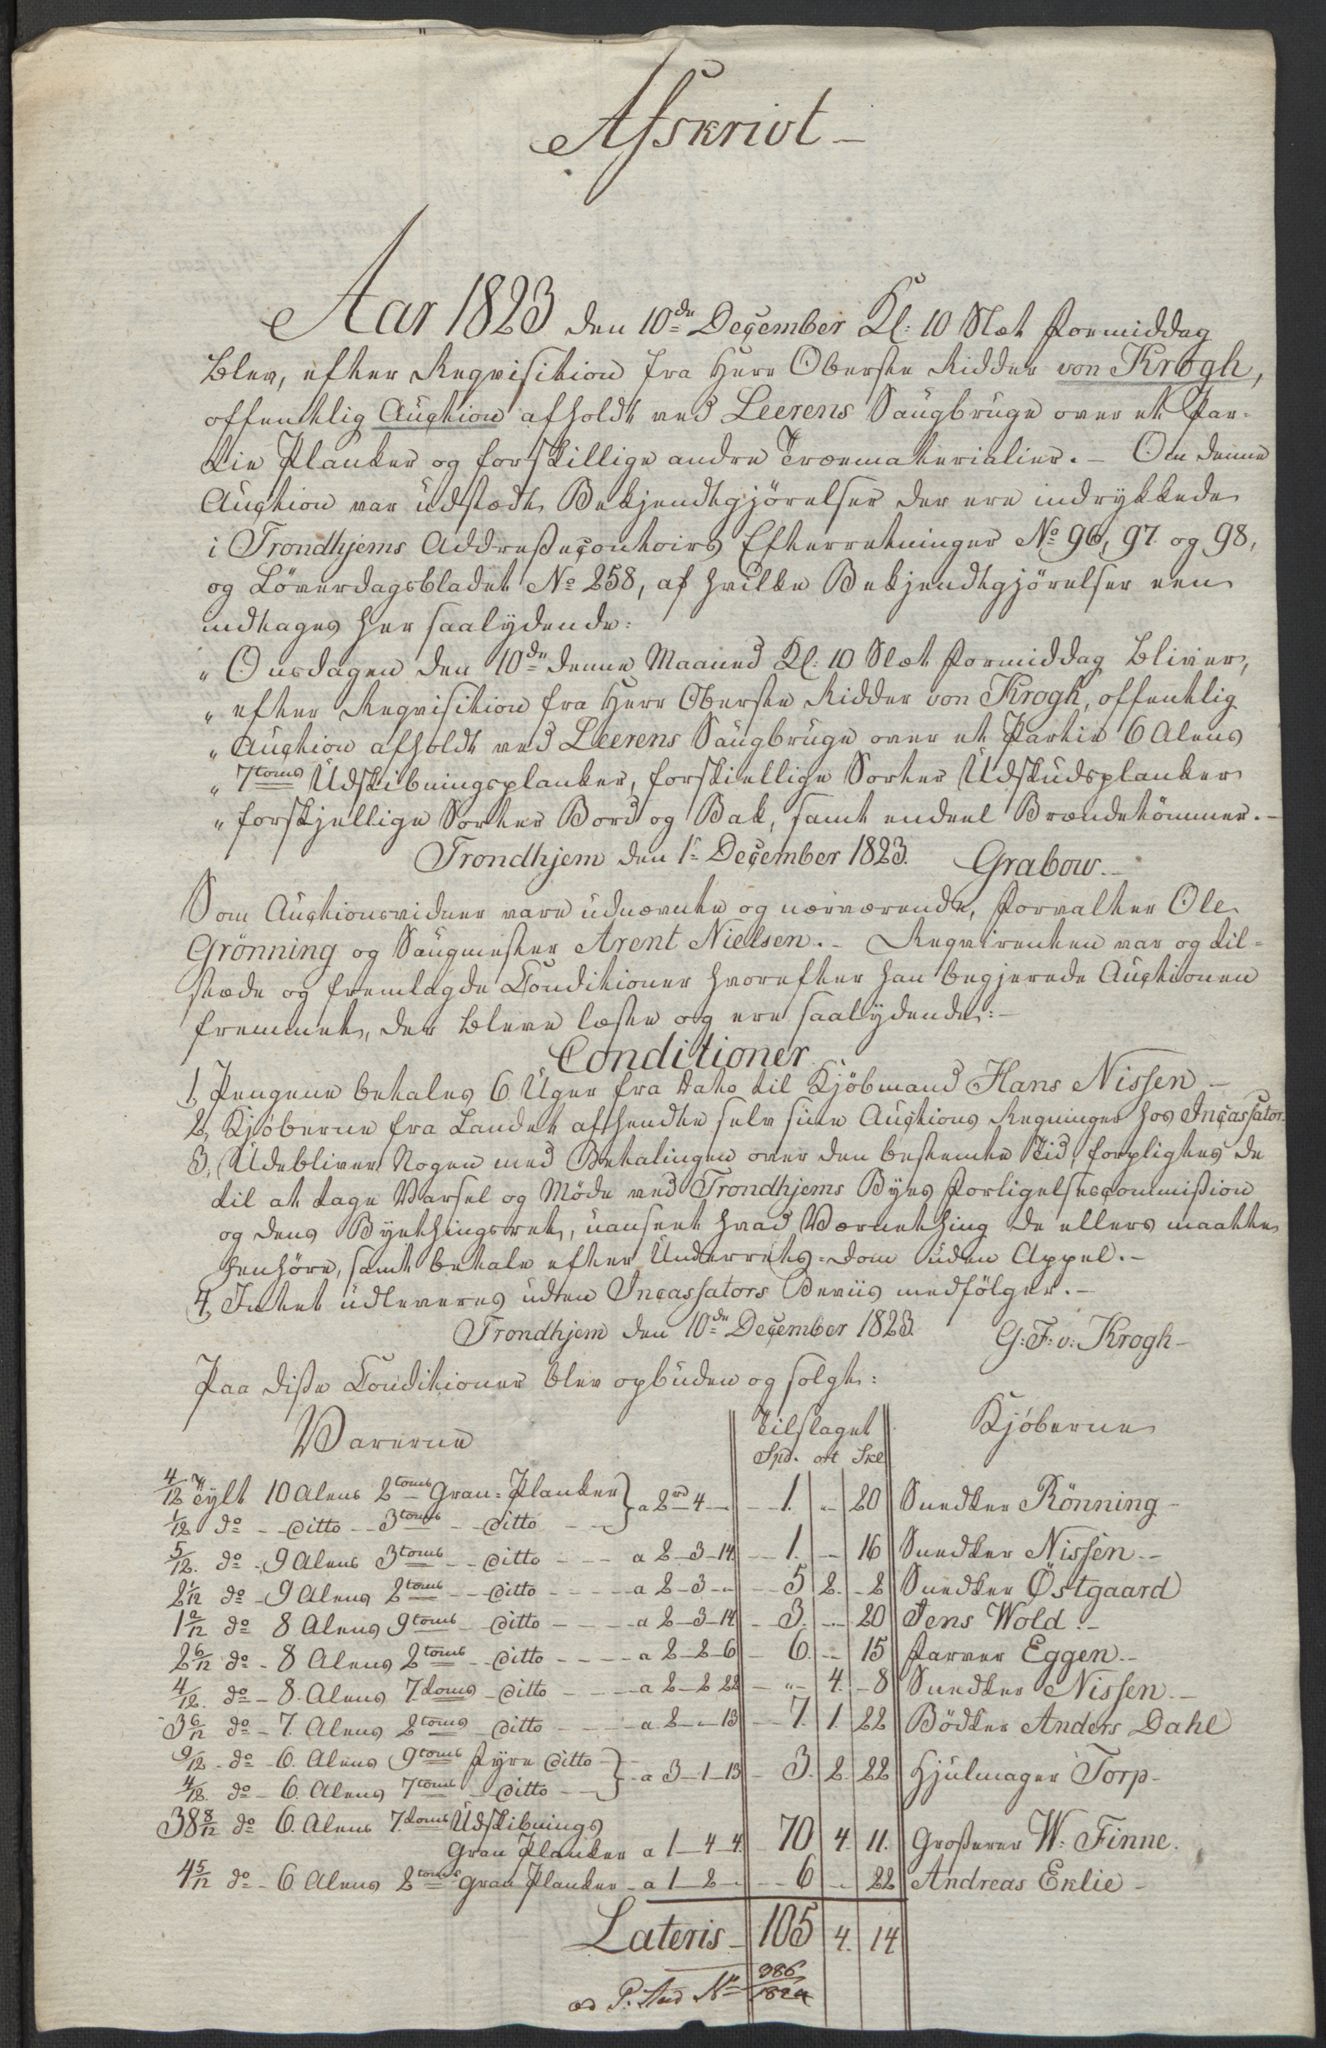 Afskrivt –
Aar 1823 den 10de December Kl: 10 Slæt Formiddag
blev, efter Reqvisition fra Herr Oberste Ridder von Krogh,
offentlig Auction afholdt ved Leerens Saugbruge over et Par-
tie Planker og forskillige andre Træematerialier. – Om denne
Auction var udstædt Bekjendtgjørelser der ere indrykkede
i Trondhjems Addressecontoirs Efterretninger No 96, 97 og 98,
og Løverdagsbladet No 258, af hvilke Bekjendtgjørelser een
indtages her saalydende:
" Onsdagen den 10de denne Maaned Kl: 10 Slæt Formiddag bliver,
" efter Reqvisition fra Herr Oberste Ridder von Krogh, offentlig
" Auction afholdt ved Leerens Saugbruge over et Partie 6 Alens
" 7toms Udskibningsplanker, forskiellige Sorter Udskudsplanker
" forskjellige Sorter Bord og Bak, samt endeel Brændetømmer. –
Trondhjem den 1ste December 1823. Grabow. –
Som Auctionsvidner vare udnævnte og nærværende, Forvalter Ole
Grönning og Saugmester Arent Nielsen. – Reqvirenten var og til-
stæde og fremlagde Conditioner hvorefter han begjerede Auctionen
fremmet, der bleve læste og ere saalydende: –
Conditioner
1, Pengene betales 6 Uger fra Dato til Kjøbmand Hans Nissen –
2, Kjøberne fra Landet afhendte selv sine Auctions Regninger hos Incassator.
3, Udebliver Nogen med Betalingen over den bestemte Tid, forpligtes de
til at tage Varsel og Møde ved Trondhjems Byes Forligelsescommission
og dens Byethingsret, uanseet hvad Værnething de ellers maatte
henhøre, samt betale efter Underrets-Dom uden Appel. –
4, Intet udleveres uden Incassators Beviis medfølger. –
Trondhjem den 10de December 1823. G: F: v: Krogh –
Paa disse Conditioner blev opbuden og solgt:
Varerne Tilslaget Kjøberne
Spd. ort Skl
4/12 Tylt 10 Alens 2toms Gran-Planker } a 2rd 4 – 1. " 20 Snedker Rönning –
1/12 do – ditto – 3toms – ditto
5/12 do – 9 Alens 3toms – ditto – a 2–3–14 – 1. – 16 Snedker Nissen. –
2 1/12 do – 9 Alens 2toms – ditto – a 2–3–" – 5 2. 2 Snedker Östgaard
1 2/12 do 8 Alens 9toms – ditto – a 2–3–14 – 3. – 20 Jens Wold. –
2 6/12 do – 8 Alens 2toms – ditto – a 2–2–6 – 6. – 15 Farver Eggen. –
4/12 do – 8. Alens 7.toms – ditto – a 2–2 22 – " 4. 8 Snedker Nissen. –
3 6/12 do – 7. Alens 2toms – ditto – a 2–"–13 – 7. 1. 22 Bödker Anders Dahl
9/12 do – 6. Alens 9toms Fyre ditto } a 3–1–13 – 3. 2. 22 Hjulmager Torp –
4/12 do – 6. Alens 7toms – ditto
38 8/12 do 6. Alens 7.toms Udskibnings
Gran Planker a 1–4–4. 70 4. 11. Grosserer W: Finne.
4 5/12 do – 6 Alens 2toms Gran Planker – a 1–2–" – 6 – 22 Andreas Eklie –
Lateris – 105 4. 14
ad P: Aud No 986/1824